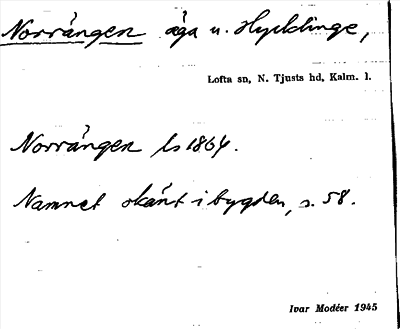 Norrängen äga u. Hycklinge,
Lofta sn, N. Tjusts hd, Kalm. l.
Norrängen ls 1864.
Namnet känt i bygden, s. 58.
Ivar Modéer 1945